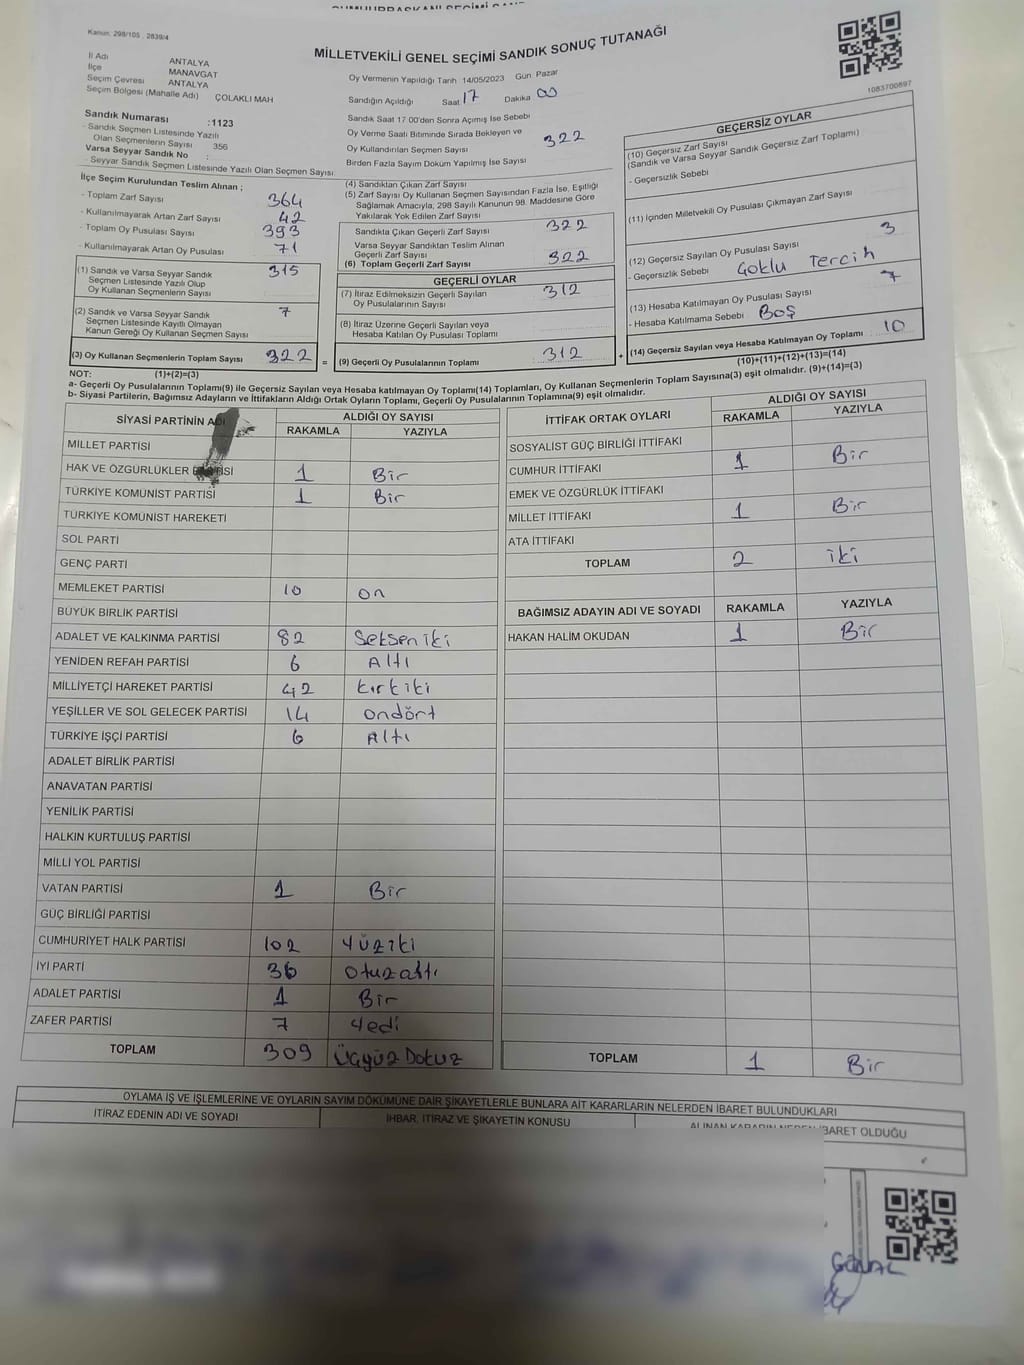 Kanun: 298/105 , 2839/4
MİLLETVEKİLİ GENEL SEÇİMİ SANDIK SONUÇ TUTANAĞI
1083700897
İl Adı ANTALYA
İlçe MANAVGAT
Seçim Çevresi ANTALYA
Seçim Bölgesi (Mahalle Adı) ÇOLAKLI MAH
Sandık Numarası :1123
- Sandık Seçmen Listesinde Yazılı
Olan Seçmenlerin Sayısı 356
Varsa Seyyar Sandık No :
- Seyyar Sandık Seçmen Listesinde Yazılı Olan Seçmen Sayısı
Oy Vermenin Yapıldığı Tarih 14/05/2023 Gün Pazar
Sandığın Açıldığı Saat 17 Dakika 00
Sandık Saat 17 00'den Sonra Açımış İse Sebebi
Oy Verme Saati Bitiminde Sırada Bekleyen ve
Oy Kullandırılan Seçmen Sayısı 322
Birden Fazla Sayım Döküm Yapılmış İse Sayısı
İlçe Seçim Kurulundan Teslim Alınan ;
- Toplam Zarf Sayısı 364
- Kullanılmayarak Artan Zarf Sayısı 42
- Toplam Oy Pusulası Sayısı 393
- Kullanılmayarak Artan Oy Pusulası 71
(1) Sandık ve Varsa Seyyar Sandık
Seçmen Listesinde Yazılı Olup
Oy Kullanan Seçmenlerin Sayısı 315
(2) Sandık ve Varsa Seyyar Sandık
Seçmen Listesinde Kayıtlı Olmayan
Kanun Gereği Oy Kullanan Seçmen Sayısı 7
(3) Oy Kullanan Seçmenlerin Toplam Sayısı 322 =
(4) Sandıktan Çıkan Zarf Sayısı
(5) Zarf Sayısı Oy Kullanan Seçmen Sayısından Fazla İse, Eşitliği
Sağlamak Amacıyla, 298 Sayılı Kanunun 98. Maddesine Göre
Yakılarak Yok Edilen Zarf Sayısı
Sandıkta Çıkan Geçerli Zarf Sayısı 322
Varsa Seyyar Sandıktan Teslim Alınan
Geçerli Zarf Sayısı
(6) Toplam Geçerli Zarf Sayısı 322
GEÇERLİ OYLAR
(7) İtiraz Edilmeksizin Geçerli Sayılan
Oy Pusulalarının Sayısı 312
(8) İtiraz Üzerine Geçerli Sayılan veya
Hesaba Katılan Oy Pusulası Toplamı
(9) Geçerli Oy Pusulalarının Toplamı 312 +
GEÇERSİZ OYLAR
(10) Geçersiz Zarf Sayısı
(Sandık ve Varsa Seyyar Sandık Geçersiz Zarf Toplamı)
- Geçersizlik Sebebi
(11) İçinden Milletvekili Oy Pusulası Çıkmayan Zarf Sayısı
(12) Geçersiz Sayılan Oy Pusulası Sayısı 3
- Geçersizlik Sebebi Çoklu Tercih
(13) Hesaba Katılmayan Oy Pusulası Sayısı 7
- Hesaba Katılmama Sebebi Boş
(14) Geçersiz Sayılan veya Hesaba Katılmayan Oy Toplamı 10
(10)+(11)+(12)+(13)=(14)
NOT: (1)+(2)=(3)
a- Geçerli Oy Pusulalarının Toplamı(9) ile Geçersiz Sayılan veya Hesaba katılmayan Oy Toplamı(14) Toplamları, Oy Kullanan Seçmenlerin Toplam Sayısına(3) eşit olmalıdır. (9)+(14)=(3)
b- Siyasi Partilerin, Bağımsız Adayların ve İttifakların Aldığı Ortak Oyların Toplamı, Geçerli Oy Pusulalarının Toplamına(9) eşit olmalıdır.
SİYASİ PARTİNİN ADI ALDIĞI OY SAYISI
RAKAMLA YAZIYLA
MİLLET PARTİSİ
HAK VE ÖZGÜRLÜKLER 1 Bir
TÜRKİYE KOMUNIST PARTİSİ 1 Bir
TÜRKİYE KOMÜNIST HAREKETİ
SOL PARTİ
GENÇ PARTİ
MEMLEKET PARTİSİ 10 on
BÜYÜK BİRLİK PARTİSİ
ADALET VE KALKINMA PARTİSİ 82 Seksen iki
YENİDEN REFAH PARTİSİ 6 Altı
MİLLİYETÇİ HAREKET PARTİSİ 42 kırk iki
YEŞİLLER VE SOL GELECEK PARTİSİ 14 ondört
TÜRKİYE İŞÇİ PARTİSİ 6 Altı
ADALET BİRLİK PARTİSİ
ANAVATAN PARTİSİ
YENİLİK PARTİSİ
HALKIN KURTULUŞ PARTİSİ
MİLLİ YOL PARTİSİ
VATAN PARTİSİ 1 Bir
GÜÇ BİRLİĞİ PARTİSİ
CUMHURİYET HALK PARTİSİ 102 Yüziki
İYİ PARTİ 36 Otuzaltı
ADALET PARTİSİ 1 Bir
ZAFER PARTİSİ 7 Yedi
TOPLAM 309 Üçyüz Dokuz
İTTİFAK ORTAK OYLARI ALDIĞI OY SAYISI
RAKAMLA YAZIYLA
SOSYALİST GÜÇ BİRLİĞİ İTTİFAKI
CUMHUR İTTİFAKI 1 Bir
EMEK VE ÖZGÜRLÜK İTTİFAKI
MİLLET İTTİFAKI 1 Bir
ATA İTTİFAKI
TOPLAM 2 iki
BAĞIMSIZ ADAYIN ADI VE SOYADI RAKAMLA YAZIYLA
HAKAN HALİM OKUDAN 1 Bir
TOPLAM 1 Bir
OYLAMA İŞ VE İŞLEMLERİNE VE OYLARIN SAYIM DÖKÜMÜNE DAİR ŞİKAYETLERLE BUNLARA AİT KARARLARIN NELERDEN İBARET BULUNDUKLARI
İTİRAZ EDENİN ADI VE SOYADI İHBAR, İTİRAZ VE ŞİKAYETİN KONUSU ALINAN KARARIN NEDEN İBARET OLDUĞU